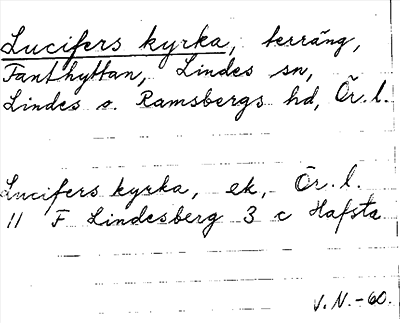 Lucifers kyrka, terräng,
Fanthyttan, Lindes sn,
Lindes o. Ramsbergs hd, Ör. l.
Lucifers kyrka, ek, Ör. l.
11 F Lindesberg 3 c Hafsta
V. N. -60.